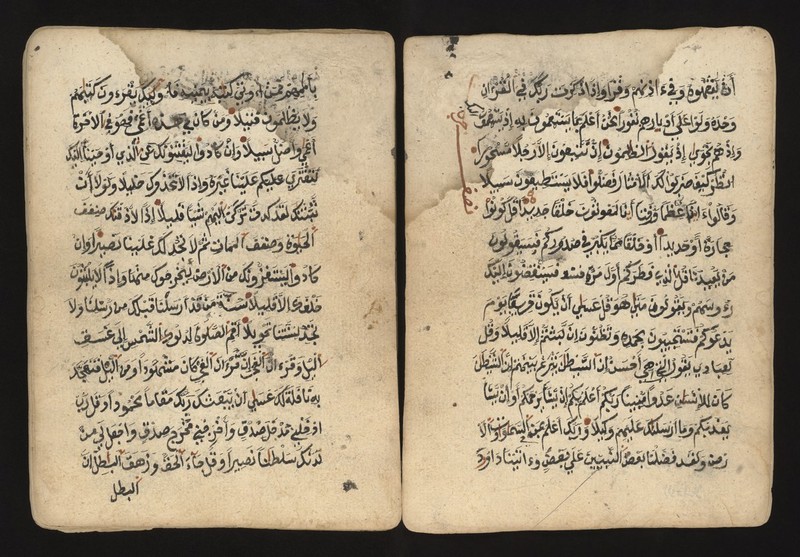 أن يفقهوه وفي ءاذنهم وقرا وإذا ذكرت ربك في القرءان
وحده ولوا على أدبرهم نفورا نحن أعلم بما يستمعون به إذ يستمعون
وإذ هم نجوى إذ يقول الظلمون إن تتبعون إلا رجلا مسحورا
انظر كيف ضربوا لك الأمثال فضلوا فلا يستطيعون سبيلا
وقالوا أءذا كنا عظما ورفتا أءنا لمبعوثون خلقا جديدا قل كونوا
حجارة أو حديدا أو خلقا مما يكبر في صدوركم فسيقولون
من يعيدنا قل الذي فطركم أول مرة فسينغضون إليك
رءوسهم ويقولون متى هو قل عسى أن يكون قريبا يوم
يدعوكم فتستجيبون بحمده وتظنون إن لبثتم إلا قليلا وقل
لعبادي يقولوا التي هي أحسن إن الشيطن ينزغ بينهم إن الشيطن
كان للإنسان عدوا مبينا ربكم أعلم بكم إن يشأ يرحمكم أو إن يشأ
يعذبكم وما أرسلنك عليهم وكيلا وربك أعلم بمن في السموات والا
رض ولقد فضلنا بعض النبيين على بعض وءاتينا داود
بإمامهم فمن أوتي كتبه بيمينه فأولئك يقرءون كتبهم
ولا يظلمون فتيلا ومن كان في هذه أعمى فهو في الآخرة
أعمى وأضل سبيلا وإن كادوا ليفتنونك عن الذي أوحينا إليك
لتفتري علينا غيره وإذا لاتخذوك خليلا ولولا أن
ثبتنك لقد كدت تركن إليهم شيئا قليلا إذا لأذقنك ضعف
الحيوة وضعف الممات ثم لا تجد لك علينا نصيرا وإن
كادوا ليستفزونك من الأرض ليخرجوك منها وإذا لا يلبثون
خلفك إلا قليلا سنة من قد أرسلنا قبلك من رسلنا ولا
تجد لسنتنا تحويلا أقم الصلوة لدلوك الشمس إلى غسق
اليل وقرءان الفجر إن قرءان الفجر كان مشهودا ومن اليل فتهجد
به نافلة لك عسى أن يبعثك ربك مقاما محمودا وقل رب
ادخلني مدخل صدق وأخرجني مخرج صدق واجعل لي من
لدنك سلطنا نصيرا وقل جاء الحق وزهق البطل إن
البطل